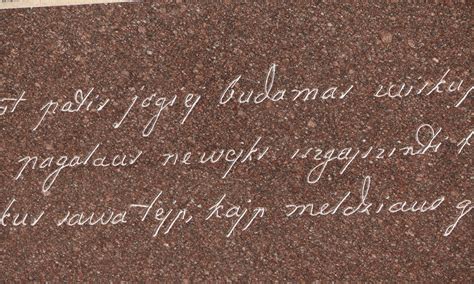 st patis jogiej budamas wiskup
pagalaus newejks iszgajszindi k
kus sawa tejp, kajp meldziaus g